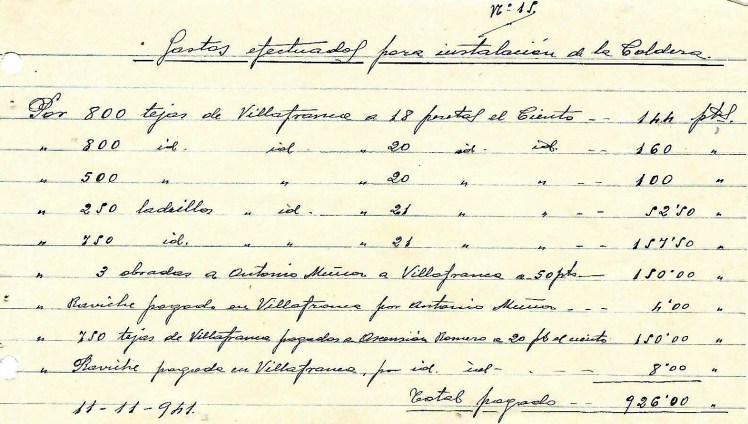 Nº 15.
Gastos efectuados para instalación de la Caldera.
Por 800 tejas de Villafranca a 18 pesetas el Ciento -- 144 pts.
" 800 id. id " 20 id. id. -- 160 "
" 500 " " " 20 " " -- 100 "
" 250 ladrillos " id. " 21 " " -- 52'50 "
" 750 id. " " " 21 " " -- 157'50 "
" 3 obradas a Antonio Muñoz a Villafranca a 50 pts — 150'00 "
" pagado en Villafranca por Antonio Muñoz --- 4'00 "
" 750 tejas de Villafranca pagados a Ascensión Romero a 20 pts el ciento 150'00 "
" pagado en Villafranca, por id. id - - - 8'00 "
11-11-941. Total pagado -- 926'00 "